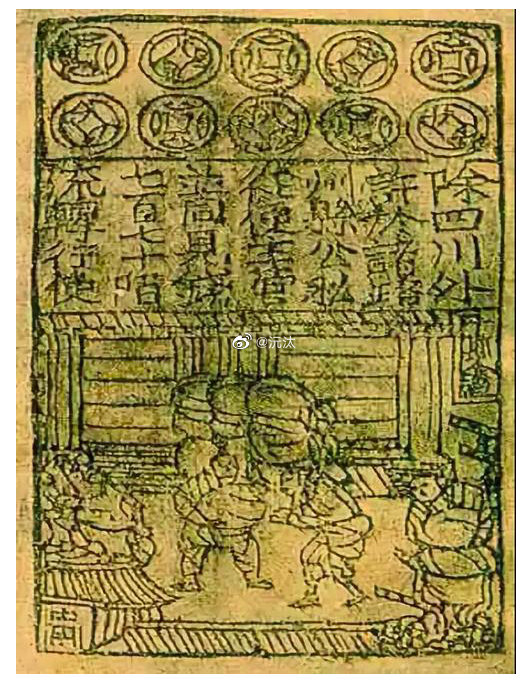 除四川外
許於諸路
州縣公私
從便主管
並同見錢
七百七十陌
流轉行使
@沅汰